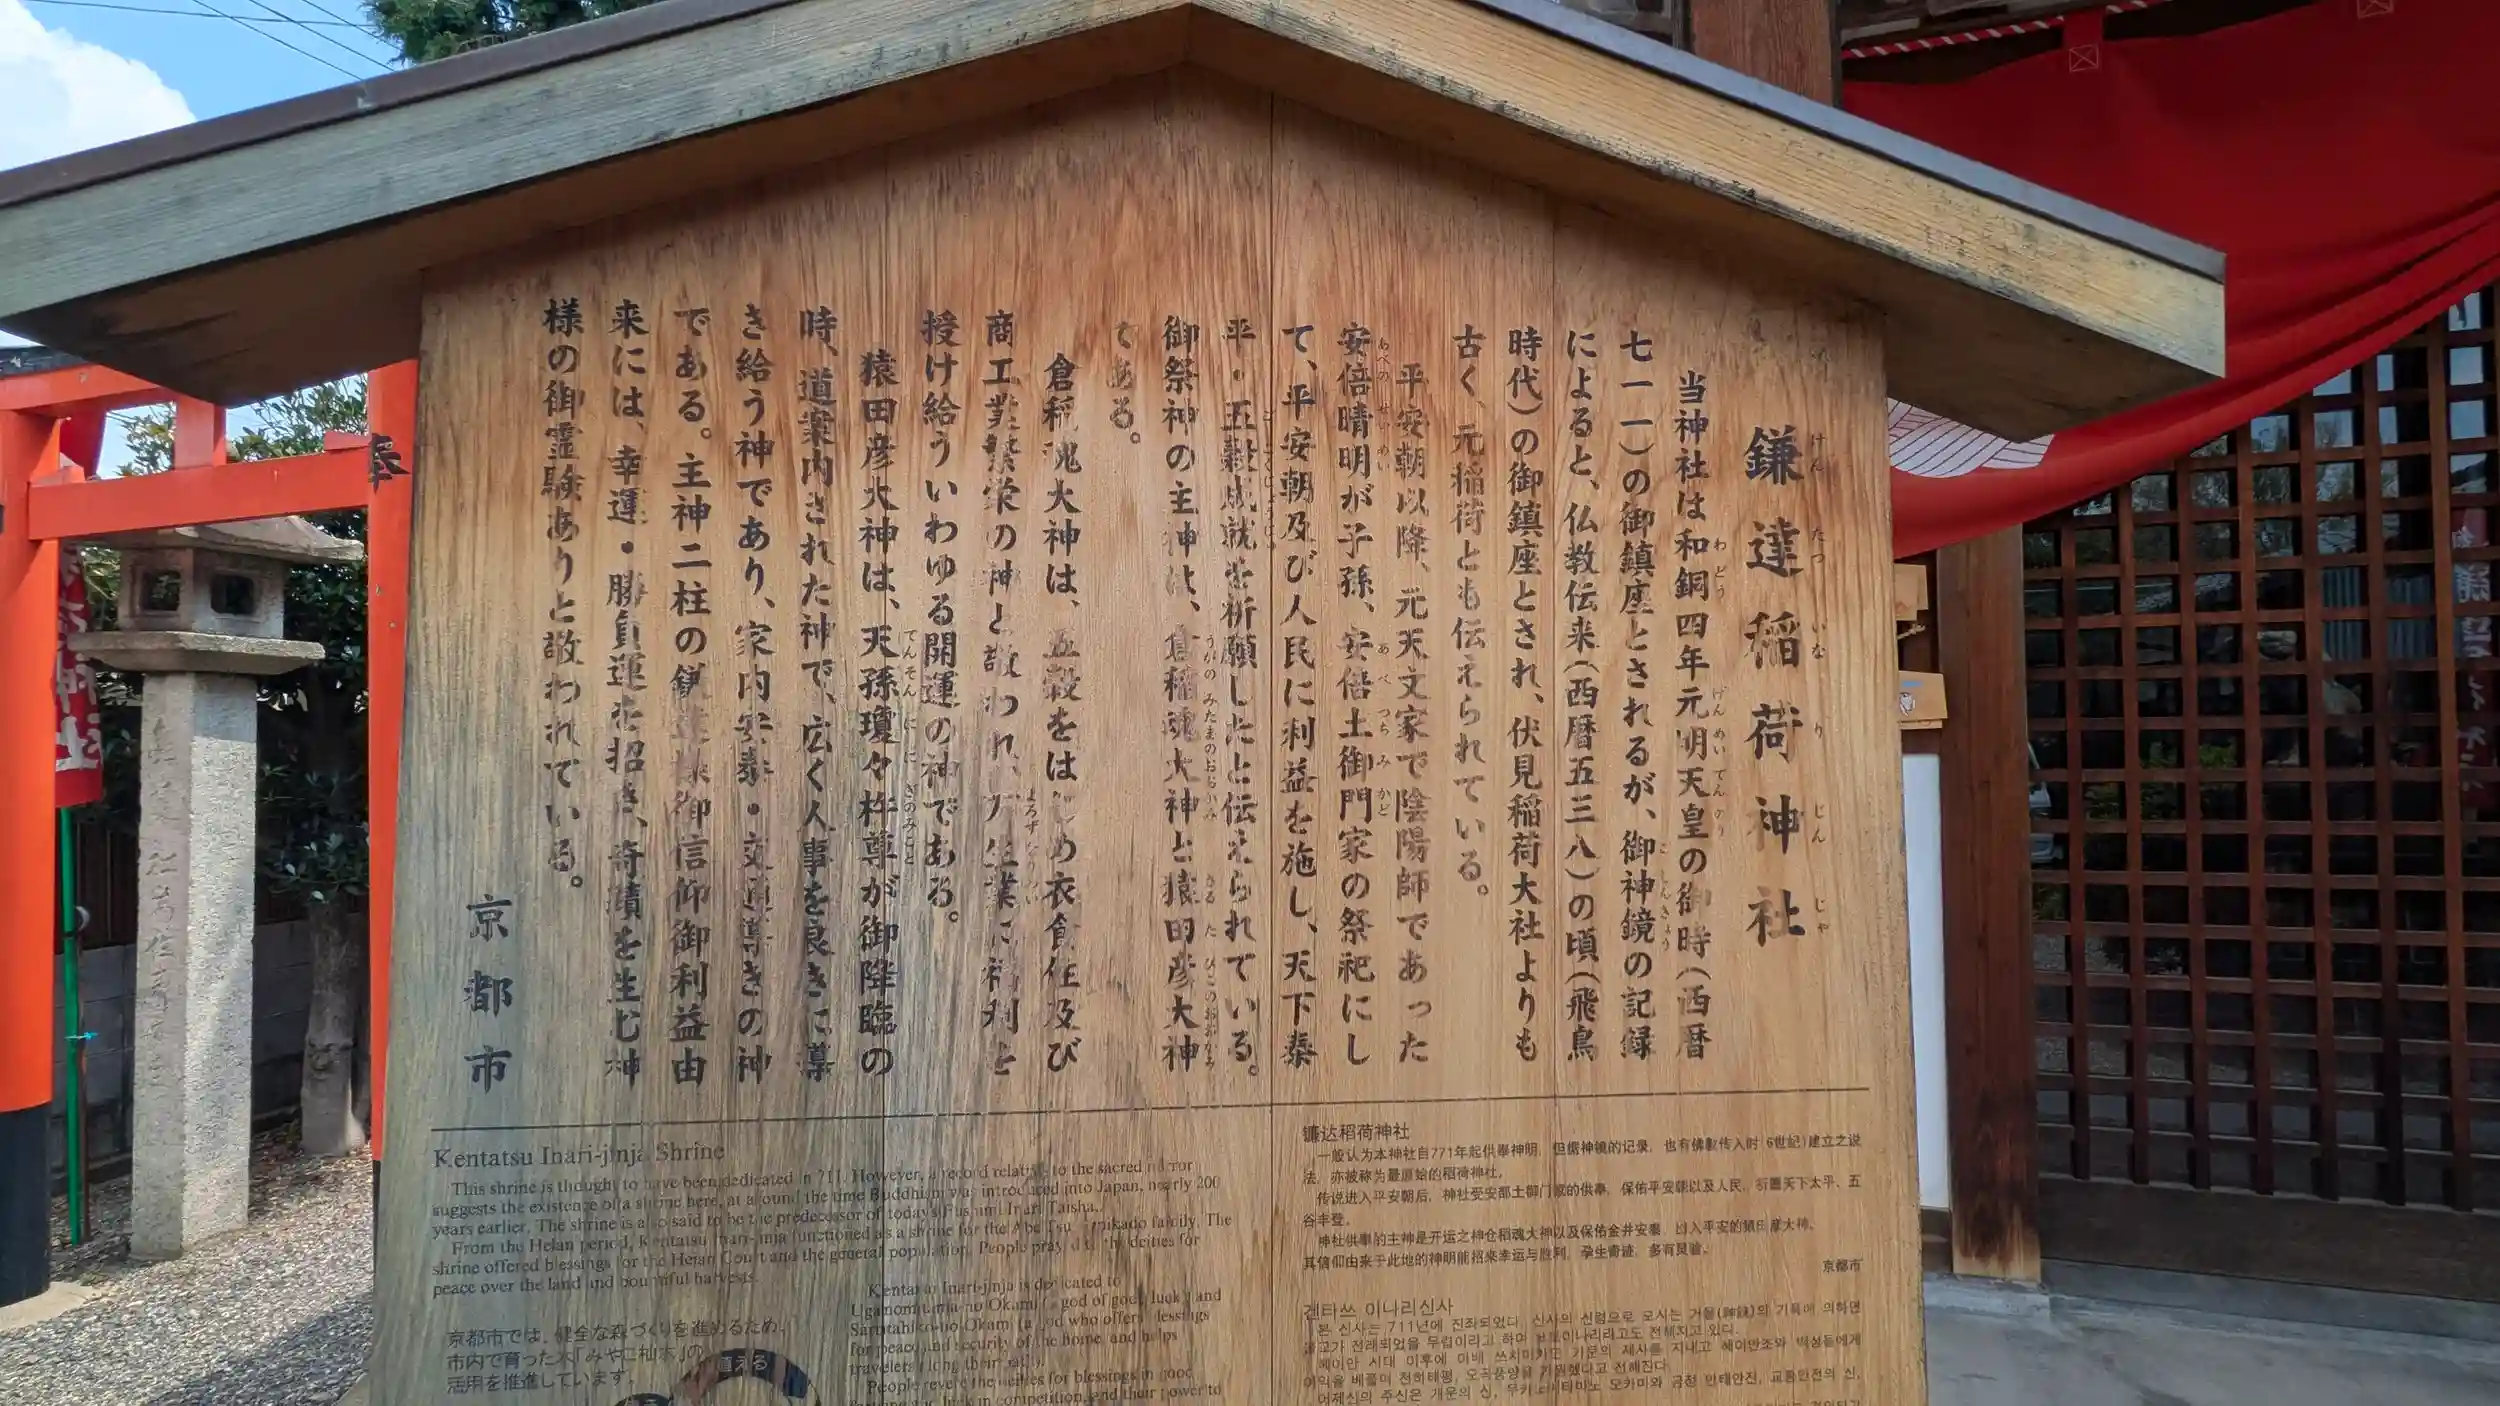 鎌達稲荷神社
けん たつ いな り じん じゃ
当神社は和銅四年元明天皇の御時(西暦
七一一)の御鎮座とされるが、御神鏡の記録
によると、仏教伝来(西暦五三八)の頃(飛鳥
時代)の御鎮座とされ、伏見稲荷大社よりも
古く、元稲荷とも伝えられている。
平安朝以降、元天文家で陰陽師であった
安倍晴明が子孫、安倍土御門家の祭祀にし
て、平安朝及び人民に利益を施し、天下泰
平・五穀成就を祈願したと伝えられている。
御祭神の主神は、倉稲魂大神と猿田彦大神
である。
倉稲魂大神は、五穀をはじめ衣食住及び
商工業繁栄の神と敬われ、万生業に福利を
授け給ういわゆる開運の神である。
猿田彦大神は、天孫瓊々杵尊が御降臨の
時、道案内された神で、広く人事を良きに導
き給う神であり、家内安泰・交通導きの神
である。主神二柱の鎌達様御信仰御利益由
来には、幸運・勝負運を招き、奇蹟を生む神
様の御霊験ありと敬われている。
京都市
Kentatsu Inari-jinja Shrine
This shrine is thought to have been dedicated in 711. However, a record relating to the sacred mirror
suggests the existence of a shrine here, at around the time Buddhism was introduced into Japan, nearly 200
years earlier. The shrine is also said to be the predecessor of today's Fushimi Inari Taisha.
From the Heian period, Kentatsu Inari-jinja functioned as a shrine for the Abe Tsuchimikado family. The
shrine offered blessings for the Heian Court and the general population. People prayed to the deities for
peace over the land and bountiful harvests.
Kentatsu Inari-jinja is dedicated to
Uganomitama-no Okami (a god of good luck) and
Sarutahiko-no Okami (a god who offers blessings
for peace and security of the home, and helps
travelers along their path).
People revere the deities for blessings in good
luck in competition, and their power to
京都市では、健全な森づくりを進めるため、
市内で育った木「みやこ杣木」の
活用を推進しています。
植える
镰达稻荷神社
一般认为本神社自771年起供奉神明，但据神镜的记录，也有佛教传入时(6世纪)建立之说
法，亦被称为最原始的稻荷神社。
传说进入平安朝后，神社受安部土御门家的供奉，保佑平安朝以及人民，祈愿天下太平、五
谷丰登。
神社供奉的主神是开运之神仓稻魂大神以及保佑金井安泰、出入平安的猿田彦大神。
其信仰由来于此地的神明能招来幸运与胜利，孕生奇迹，多有灵验。
京都市
겐타쓰 이나리신사
본 신사는 711년에 진좌되었다. 신사의 신령으로 모시는 거울(神鏡)의 기록에 의하면
불교가 전래되었을 무렵이라고 하며 이나리라고도 전해지고 있다.
헤이안 시대 이후에 아베 쓰치미카도 가문의 제사를 지내고 헤이안조와 백성들에게
이익을 베풀며 천하태평, 오곡풍양을 기원했다고 전해진다.
奉